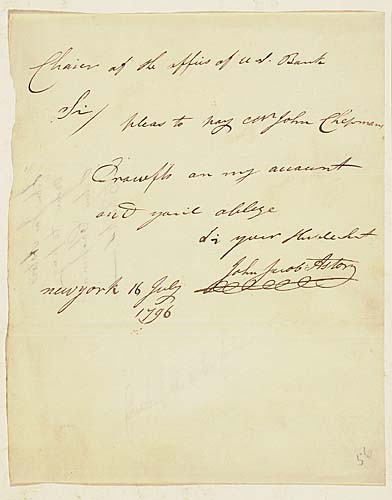 Chaier of the offies of u S. Bank
Sir/
pleas to pay Mr John Chepman
Drawfts on my account
and you'l oblege
Sir your
John Jacob Astor
newyork 16 July
1796
56